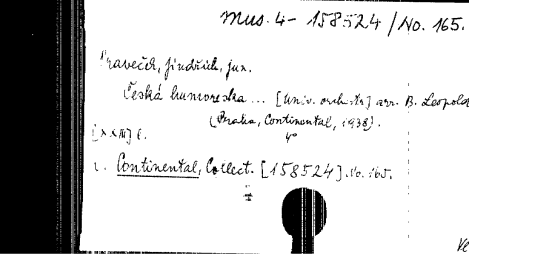 Mus. 4 - 158524 / No. 165.
Praveček, Jindřich, jun.
Česká humoreska ... [Univ. orchestr] arr. B. Leopold
(Praha, Continental, 1938).
4°
[XXIII] C.
Continental, Collect. [158524]. No. 165.